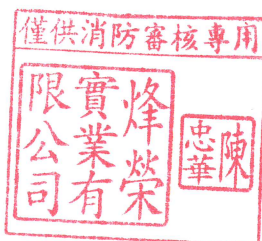 僅供消防審核專用
烽榮
實業有
限公司
陳
忠華